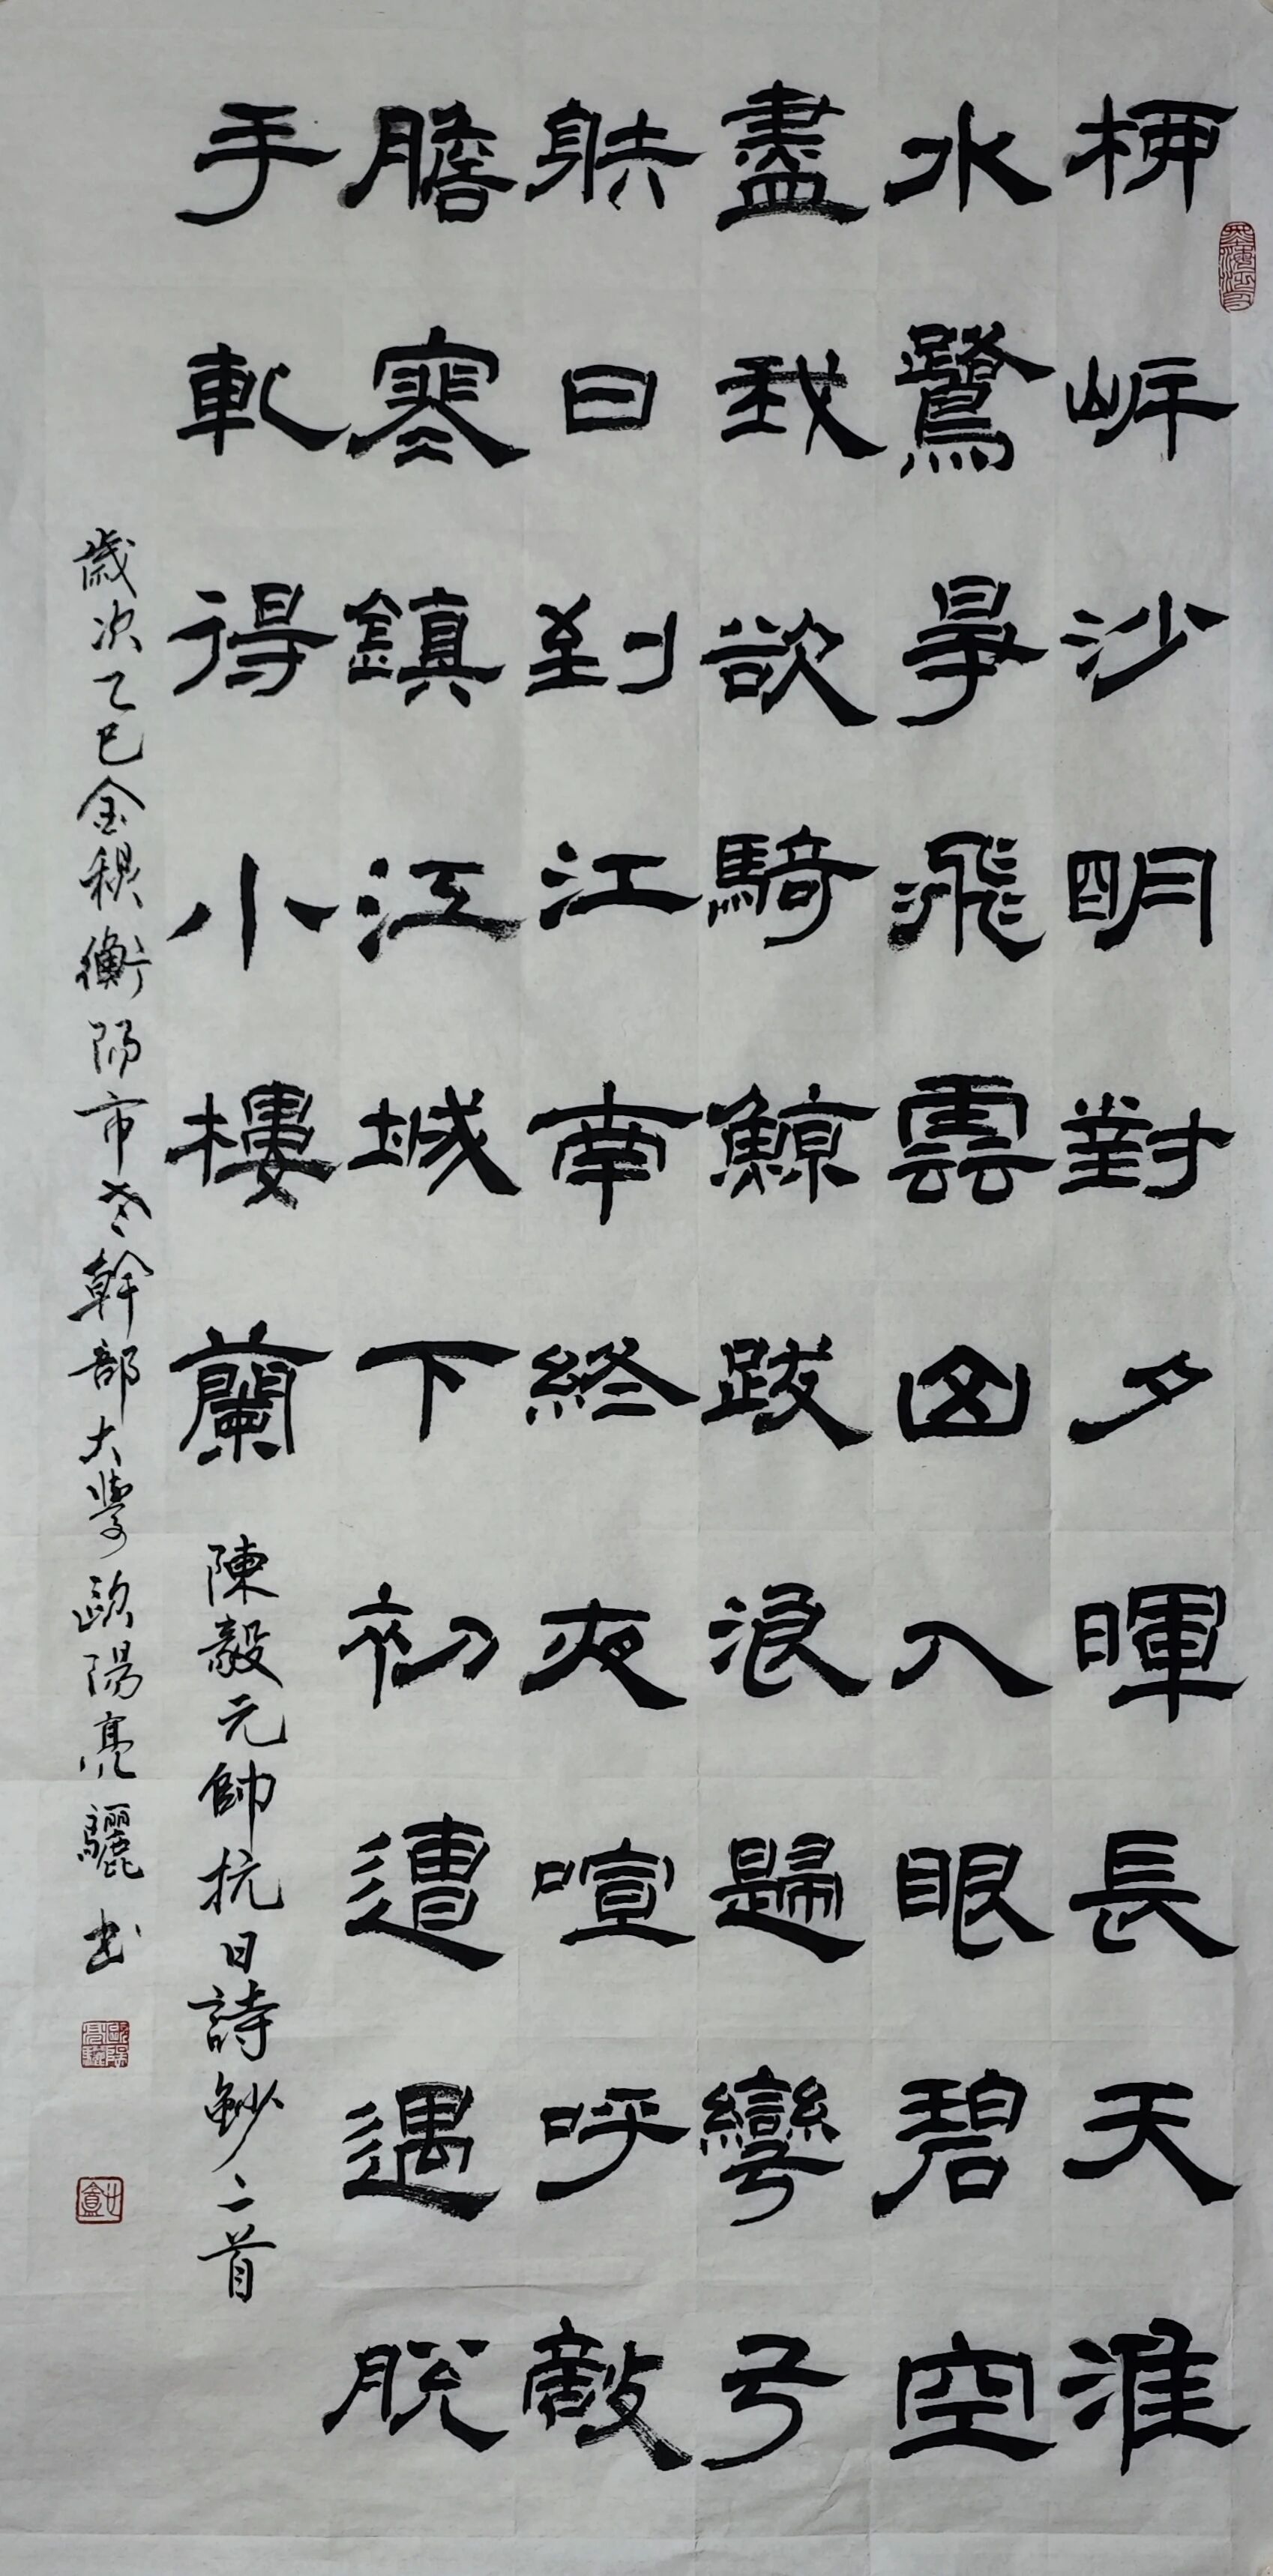 柳岸沙明對夕暉長天淮
水鷺爭飛雲山入眼碧空
盡我欲騎鯨跋浪歸彎弓
射日到江南終夜喧呼敵
膽寒鎮江城下初遭遇脫
手斬得小樓蘭
陳毅元帥抗日詩鈔二首
歲次乙巳金秋衡陽市老幹部大學歐陽亮驪书